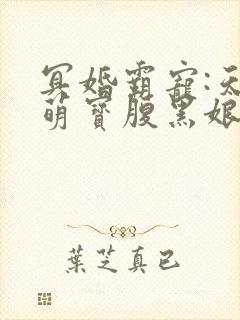 冥婚霸寵:天
萌寶腹黑娘
葉芝真已